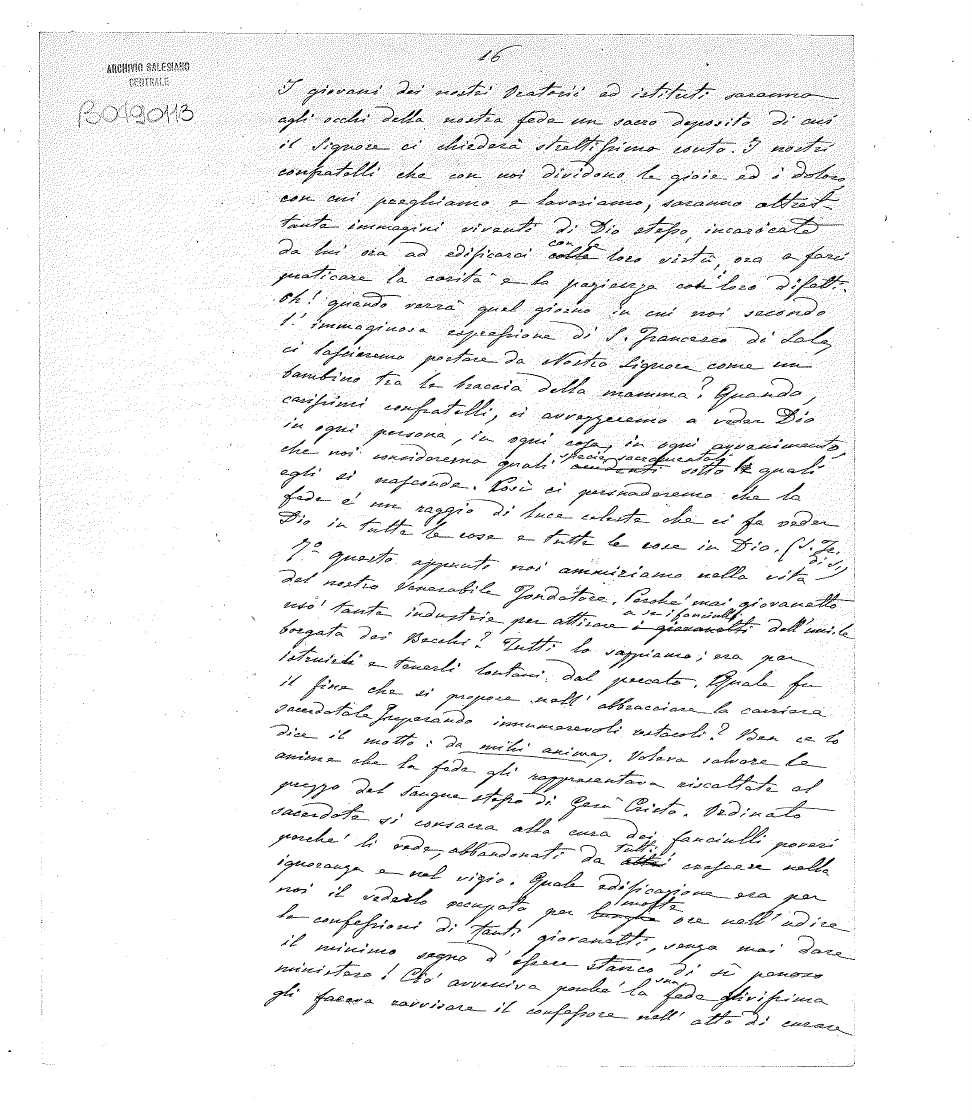 16
ARCHIVIO SALESIANO
CENTRALE
B0490113
I giovani dei nostri Oratorii ed istituti saranno
agli occhi della nostra fede un sacro deposito di cui
il Signore ci chiederà strettissimo conto. I nostri
confratelli che con noi dividono le gioie ed i dolori,
con cui preghiamo e lavoriamo, saranno altret-
tante immagini viventi di Dio stesso, incaricate
da lui ora ad edificarci con le colle loro virtù, ora a farci
praticare la carità e la pazienza con i loro difetti.
Oh! quando verrà quel giorno in cui noi secondo
l'immaginosa espressione di S. Francesco di Sales,
ci lascieremo portare da Nostro Signore come un
bambino tra le braccia della mamma? Quando,
carissimi confratelli, ci avvezzeremo a veder Dio
in ogni persona, in ogni cosa, in ogni avvenimento,
che noi considereremo quali specie sacramentali accidenti sotto le quali
egli si nasconde. Così ci persuaderemo che la
fede è un raggio di luce celeste che ci fa veder
Dio in tutte le cose e tutte le cose in Dio. (S. Fr.
di S.)
7º questo appunto noi ammiriamo nella vita
del nostro Venerabile Fondatore. Perchè mai giovanetto
usò tante industrie per attirare a se i fanciulli i giovanetti dell'umile
borgata dei Becchi? Tutti lo sappiamo; era per
istruirli e tenerli lontani dal peccato. Quale fu
il fine che si propose nell'abbracciare la carriera
sacerdotale superando innumerevoli ostacoli? Ben ce lo
dice il motto: da mihi animas. Voleva salvare le
anime che la fede gli rappresentava riscattate al
prezzo del Sangue stesso di Gesù Cristo. Ordinato
sacerdote si consacra alla cura dei fanciulli poveri
perchè li vede, abbandonati da tutti altri crescere nella
ignoranza e nel vizio. Quale edificazione era per
noi il vederlo occupato per molte lunghe ore nell'udire
le confessioni di tanti giovanetti, senza mai dare
il minimo segno d'essere stanco di sì penoso
ministero! Ciò avveniva perchè la sua fede vivissima
gli faceva ravvisare il confessore nell'atto di curare